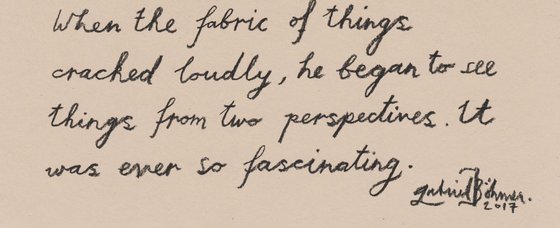 When the fabric of things
cracked loudly, he began to see
things from two perspectives. It
was ever so fascinating.
gabriel Böhmer.
2017